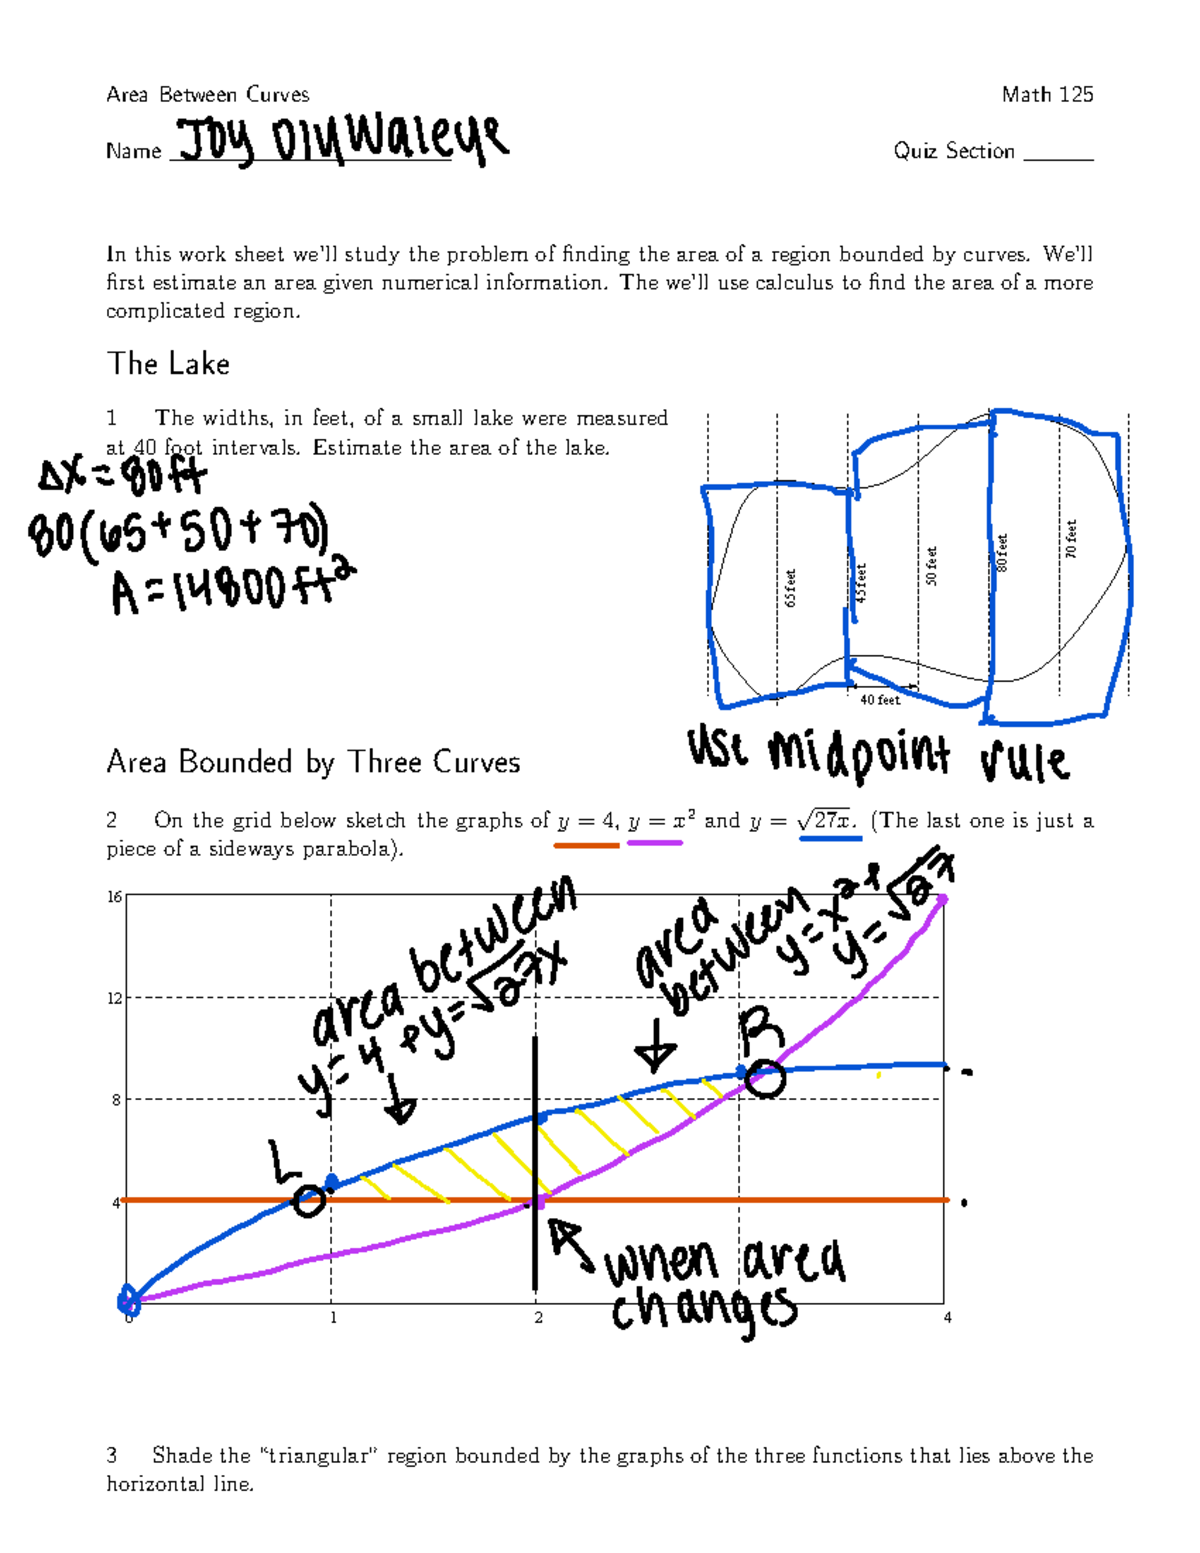 Area Between Curves Math 125
Name Joy Oluwaleye Quiz Section
In this work sheet we'll study the problem of finding the area of a region bounded by curves. We'll
first estimate an area given numerical information. The we'll use calculus to find the area of a more
complicated region.
The Lake
1 The widths, in feet, of a small lake were measured
at 40 foot intervals. Estimate the area of the lake.
Δx = 80ft
80(65+50+70)
A = 14800ft²
65 feet
45 feet
50 feet
80 feet
70 feet
40 feet
use midpoint rule
Area Bounded by Three Curves
2 On the grid below sketch the graphs of y = 4, y = x² and y = √27x. (The last one is just a
piece of a sideways parabola).
area between
y=4 + y=√27x
area
between
y=x² +
y=√27
16
12
8
4
L
B
when area
changes
0 1 2 4
3 Shade the “triangular” region bounded by the graphs of the three functions that lies above the
horizontal line.